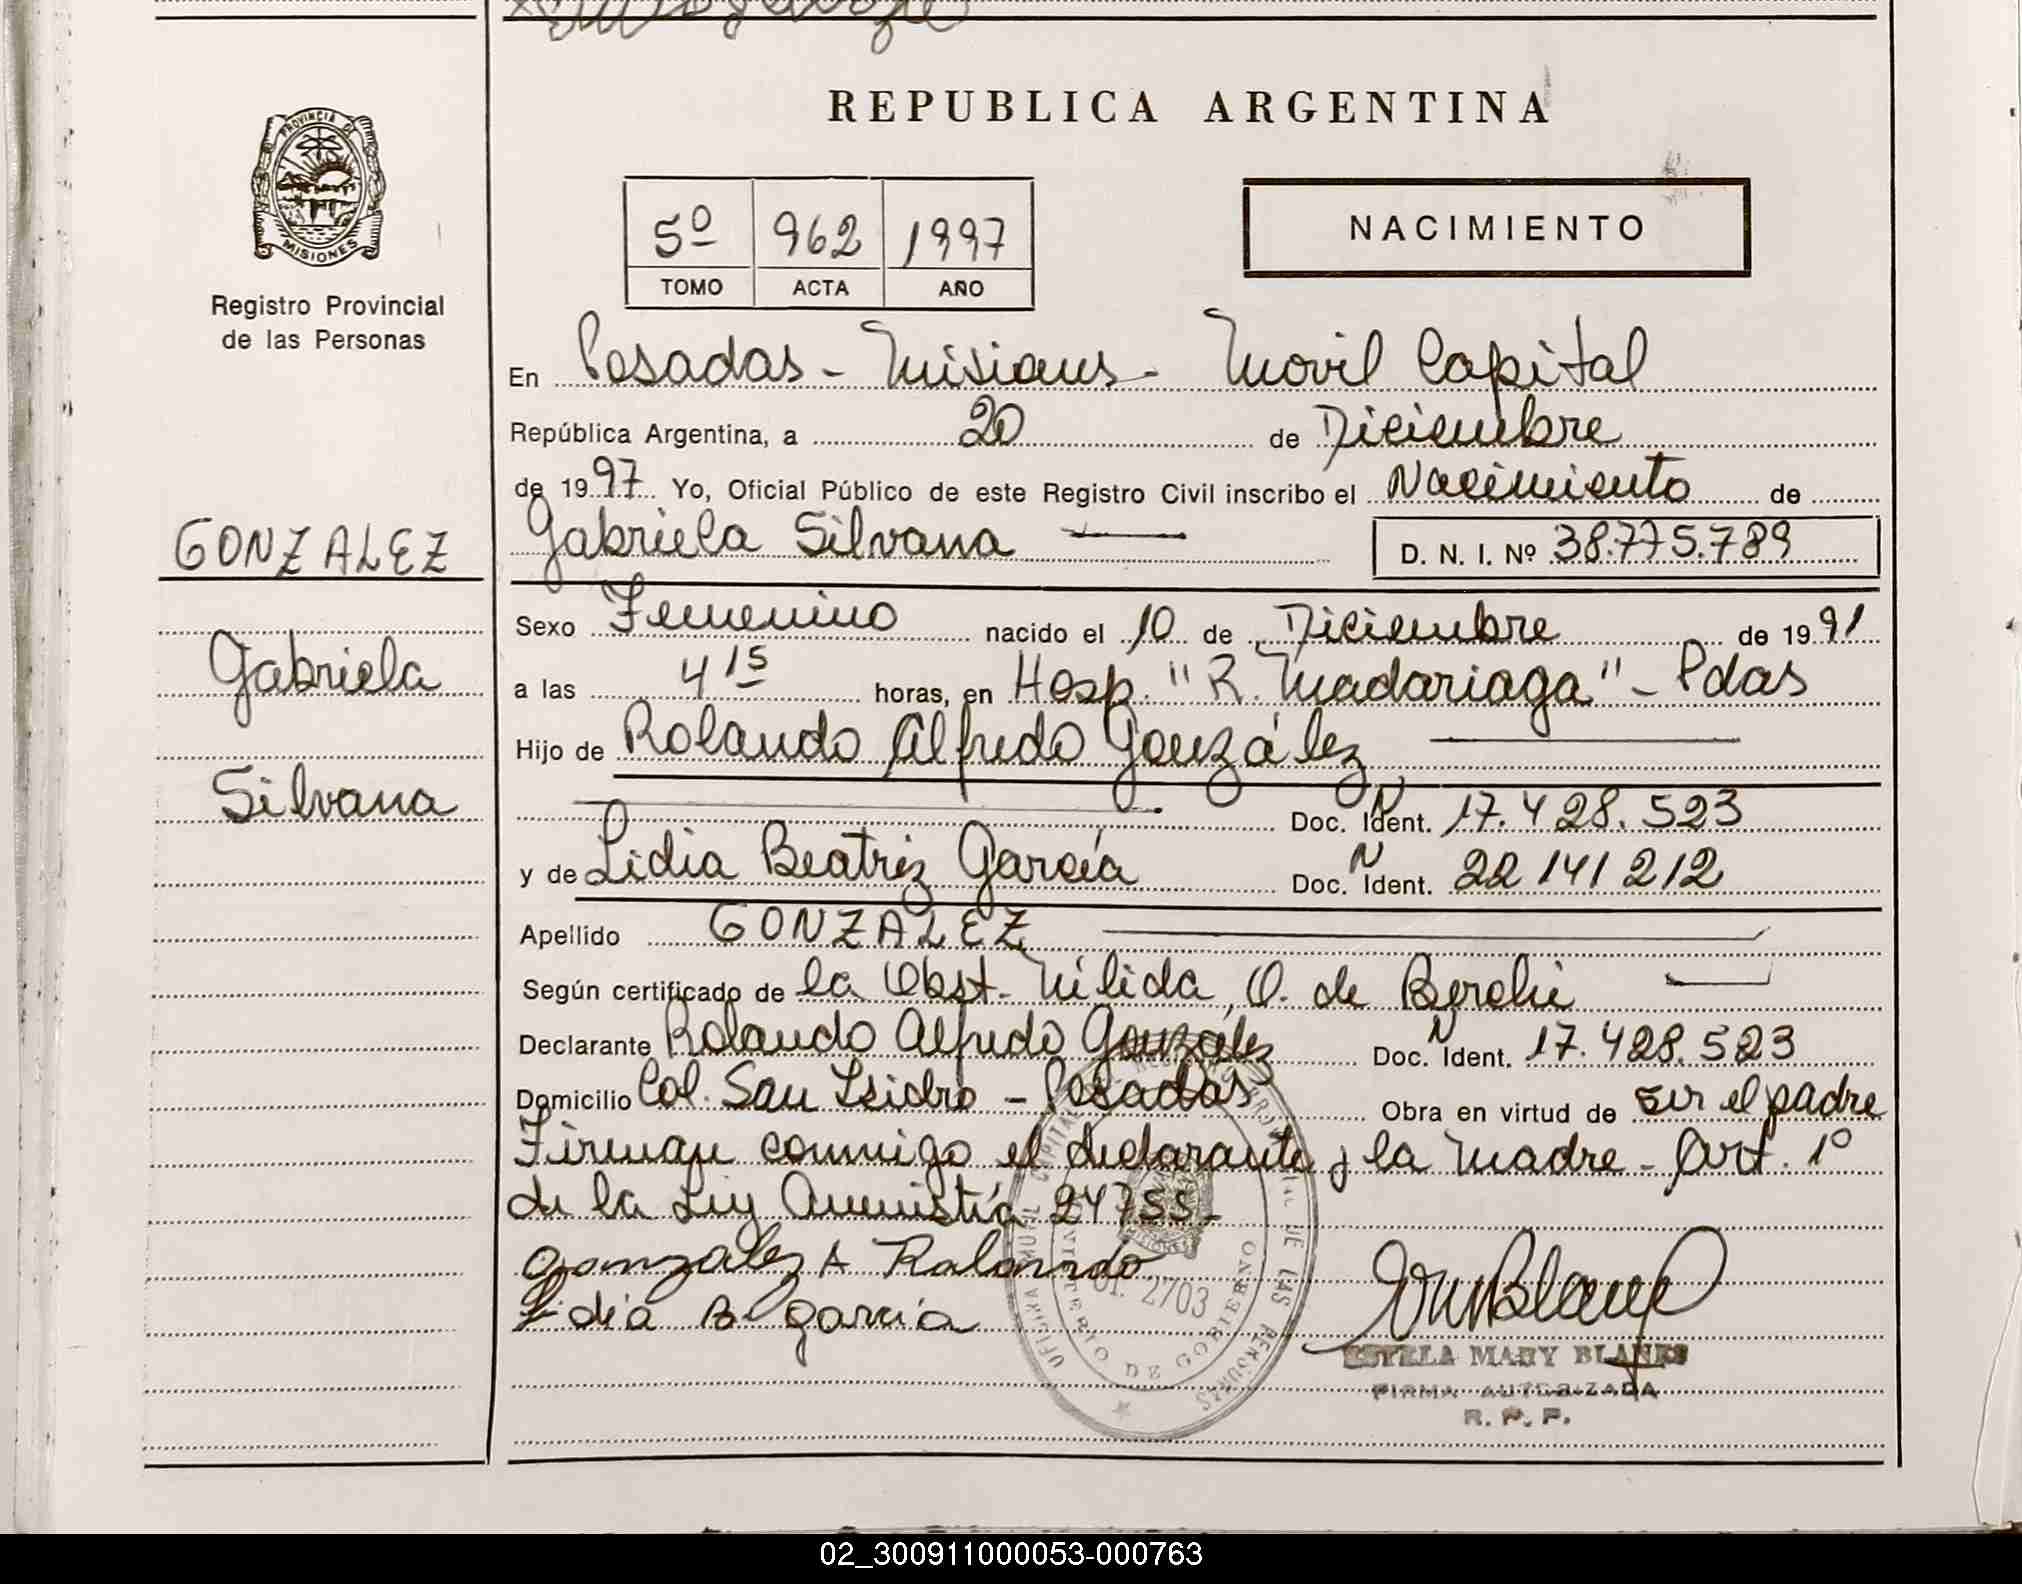 REPUBLICA ARGENTINA
PROVINCIA DE
MISIONES
Registro Provincial
de las Personas
5º 962 1997
TOMO ACTA AÑO
NACIMIENTO
En Posadas - Misiones - Movil Capital
República Argentina, a 20 de Diciembre
de 1997 Yo, Oficial Público de este Registro Civil inscribo el Nacimiento de
GONZALEZ
Gabriela Silvana
D. N. I. Nº 38.775.789
Sexo Femenino nacido el 10 de Diciembre de 1991
Gabriela
a las 4 15 horas, en Hosp. "R. Madariaga" - Pdas
Hijo de Rolando Alfredo González
Silvana
Doc. N Ident. 17.428.523
y de Lidia Beatriz García Doc. N Ident. 22 141 212
Apellido GONZALEZ
Según certificado de la Obst. Nélida O. de
Declarante Rolando Alfredo González Doc. N Ident. 17.428.523
Domicilio Col. San Isidro - Posadas Obra en virtud de ser el padre
Firman conmigo el declarante y la madre - Art. 1º
de la Ley Amnistía 24755-
Gonzalez A Rolando
Lidia B garcia
OFICINA MOVIL CAPITAL REGISTRO PROVINCIAL DE LAS PERSONAS
MINISTERIO DE GOBIERNO
2703
ESTELA MARY BLANES
FIRMA AUTORIZADA
R. P. P.
02_300911000053-000763